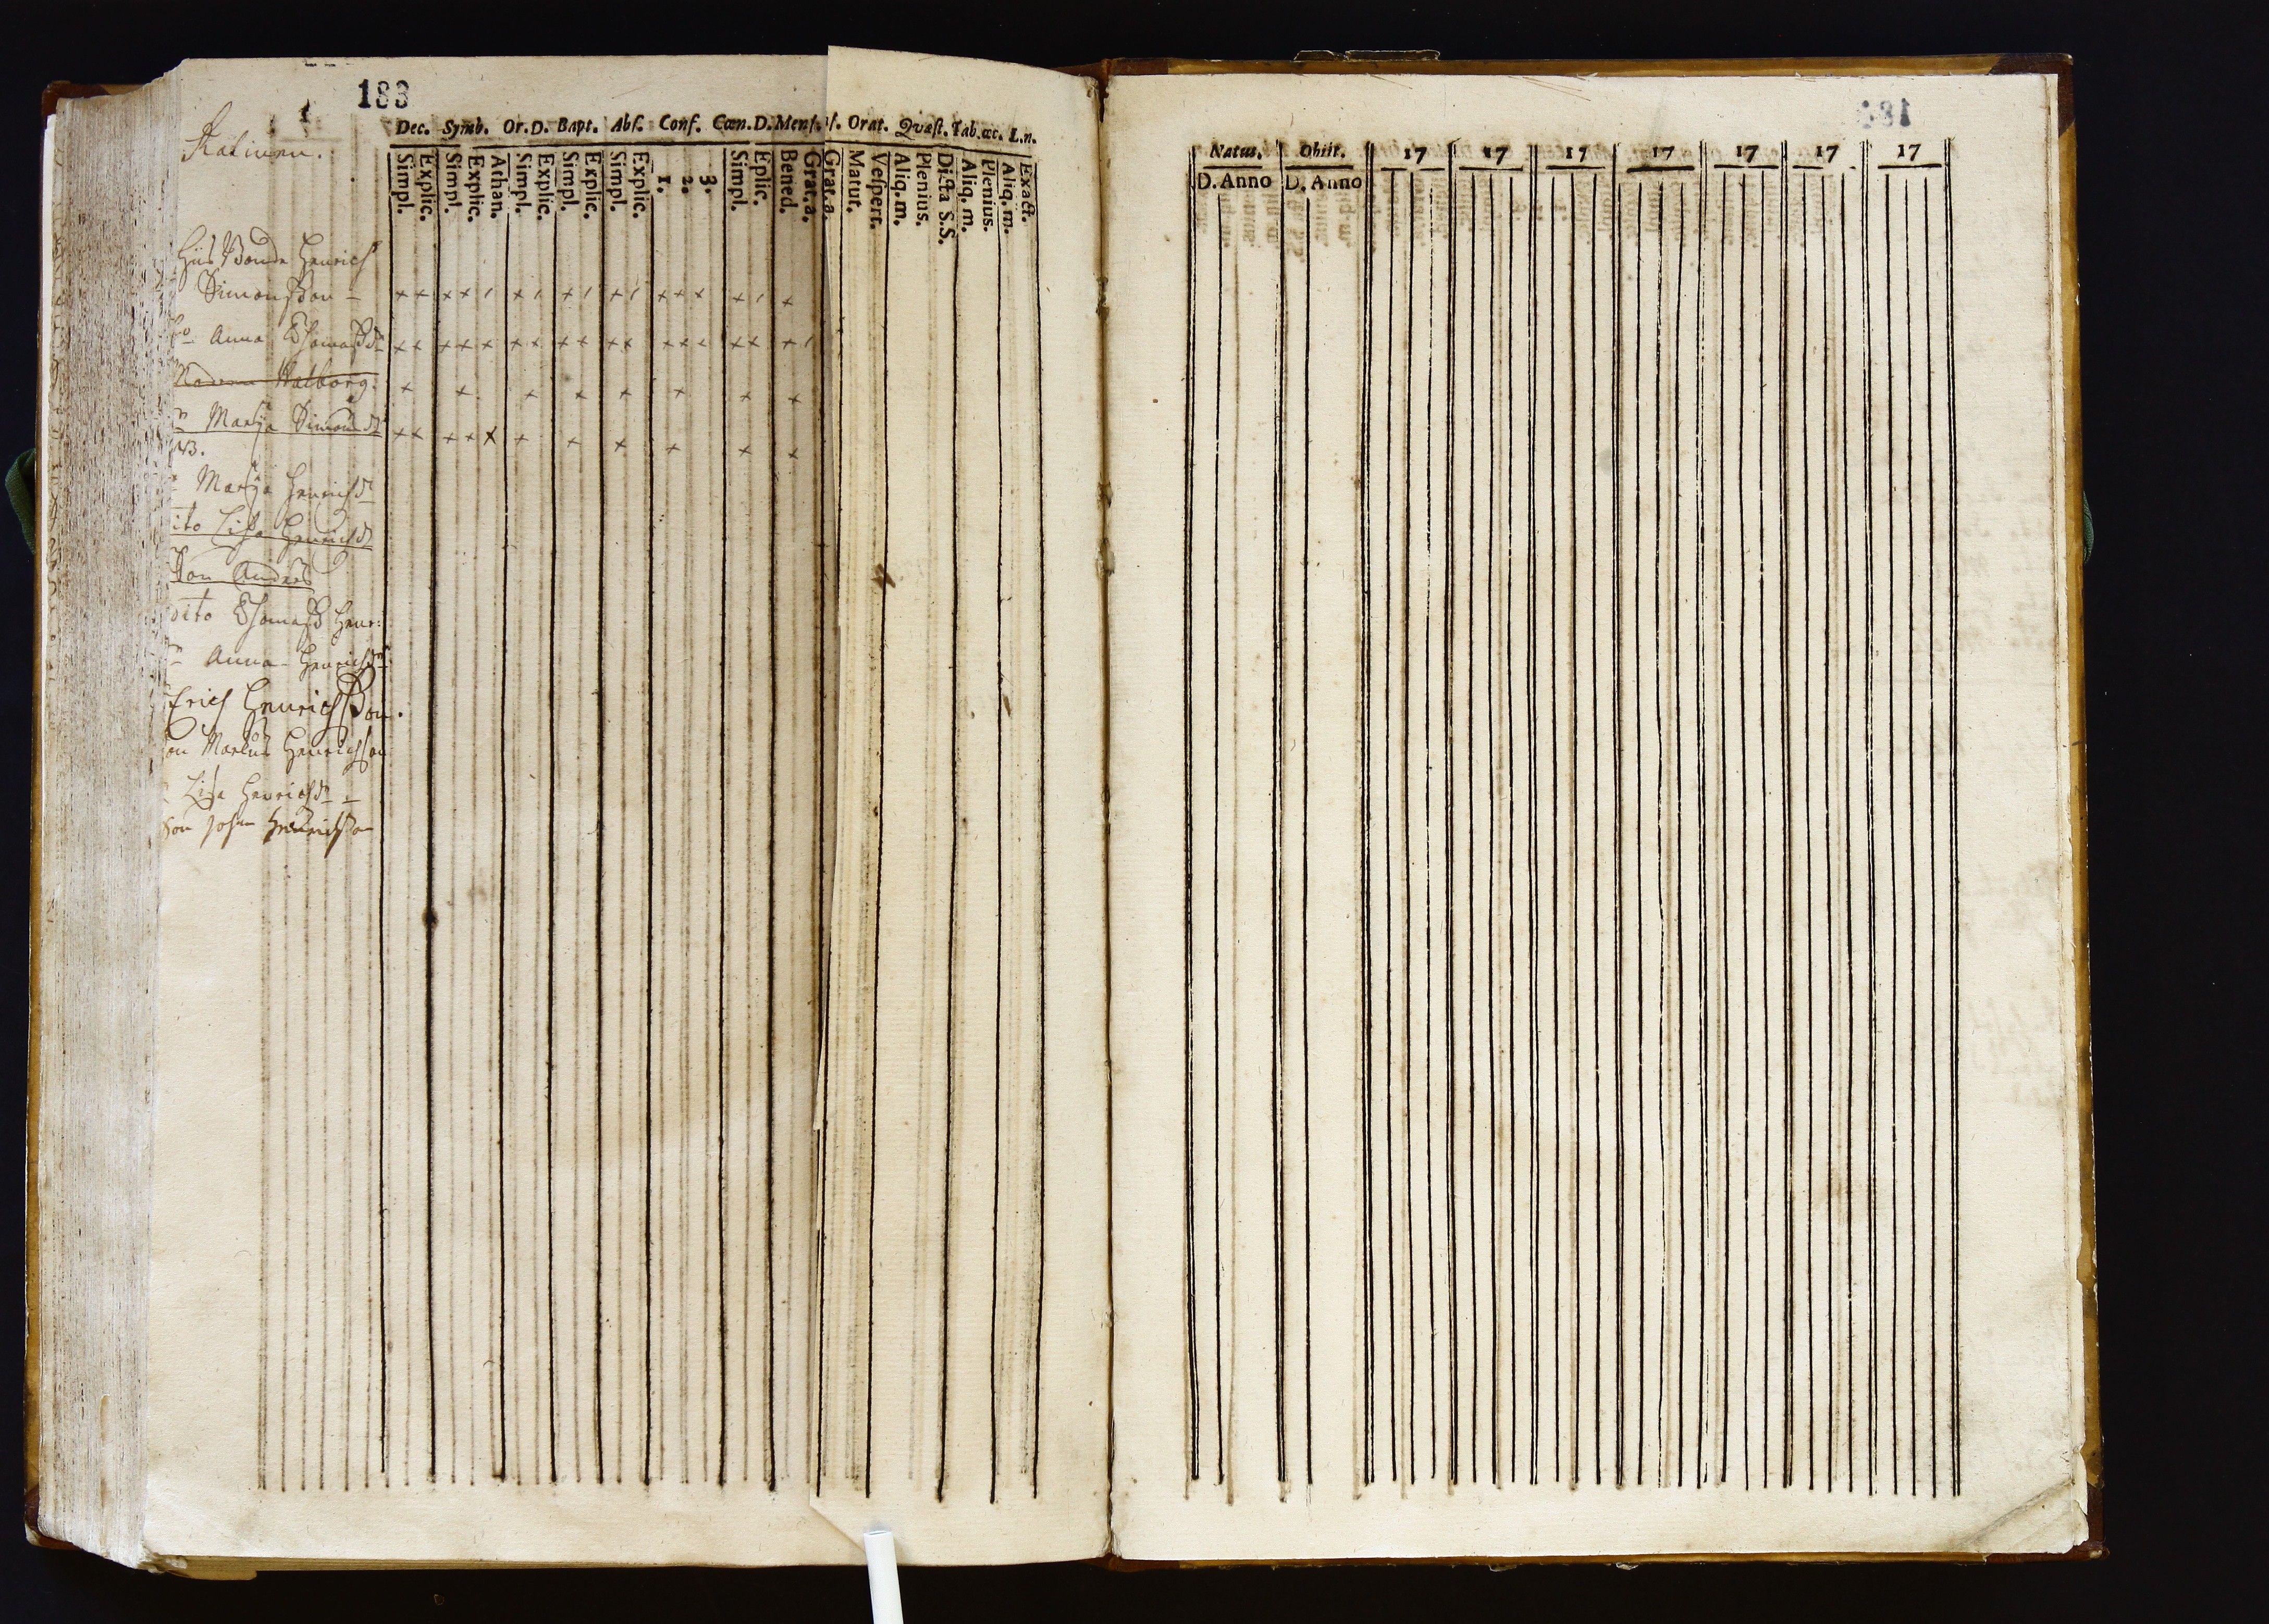 188
Dec. Symb. Or.D. Bapt. Abſ. Conf. Cœn.D. Menſ. ſ. Orat. Qvæſt. Tab.œc. L.n.
Simpl. Explic. Simpl. Explic. Athan. Simpl. Explic. Simpl. Explic. Simpl. Explic. 1. 2. 3. Simpl. Eplic. Bened. Grat.a. Grat.a. Matut. Veſpert. Aliq.m. Plenius. Dicta S.S. Aliq. m. Plenius. Aliq. m. Exact.
Bonde Henrich
Simonsson
Anna Thomasdr
Walborg.
Marja Simonsdr
NB.
Marja Henrichsdr
ito Lisa Henrichsdr
Son Anders
dito Thomas Henr:
Anna Henrichsdr
Erich Henrichsson.
on Markus Henrichsson
Lisa Henrichsdr
Son Johan Henrichsson
Natus. Obiit. 17 17 17 17 17 17 17
D. Anno D. Anno